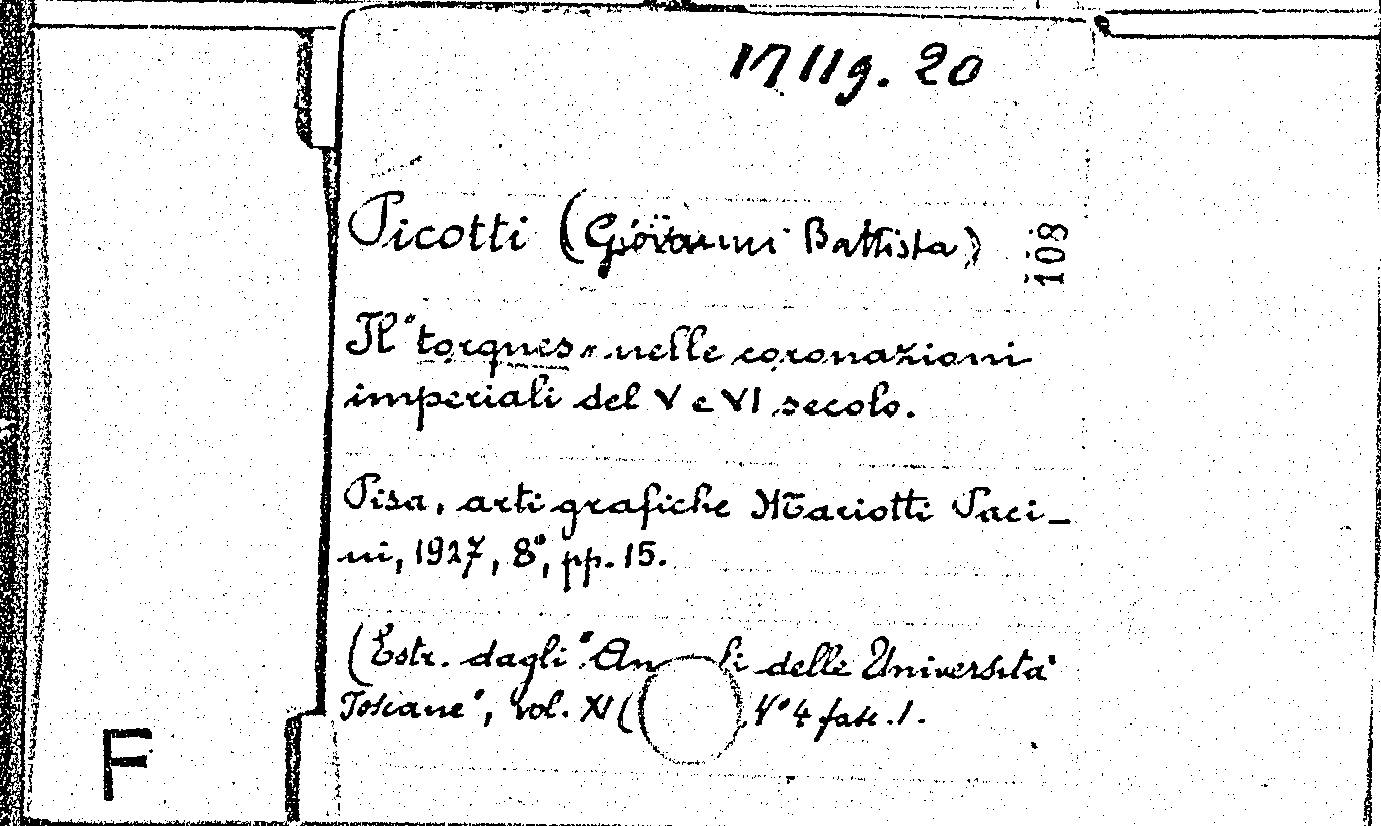 17 11g. 20
Picotti (Giovanni Battista)
108
Il "torques" nelle coronazioni
imperiali del V e VI secolo.
Pisa, arti grafiche Mariotti Paci-
ni, 1927, 8°, pp. 15.
(Estr. dagli "An li delle Università
Toscane", vol. XI ( 4 fasc. 1.
F